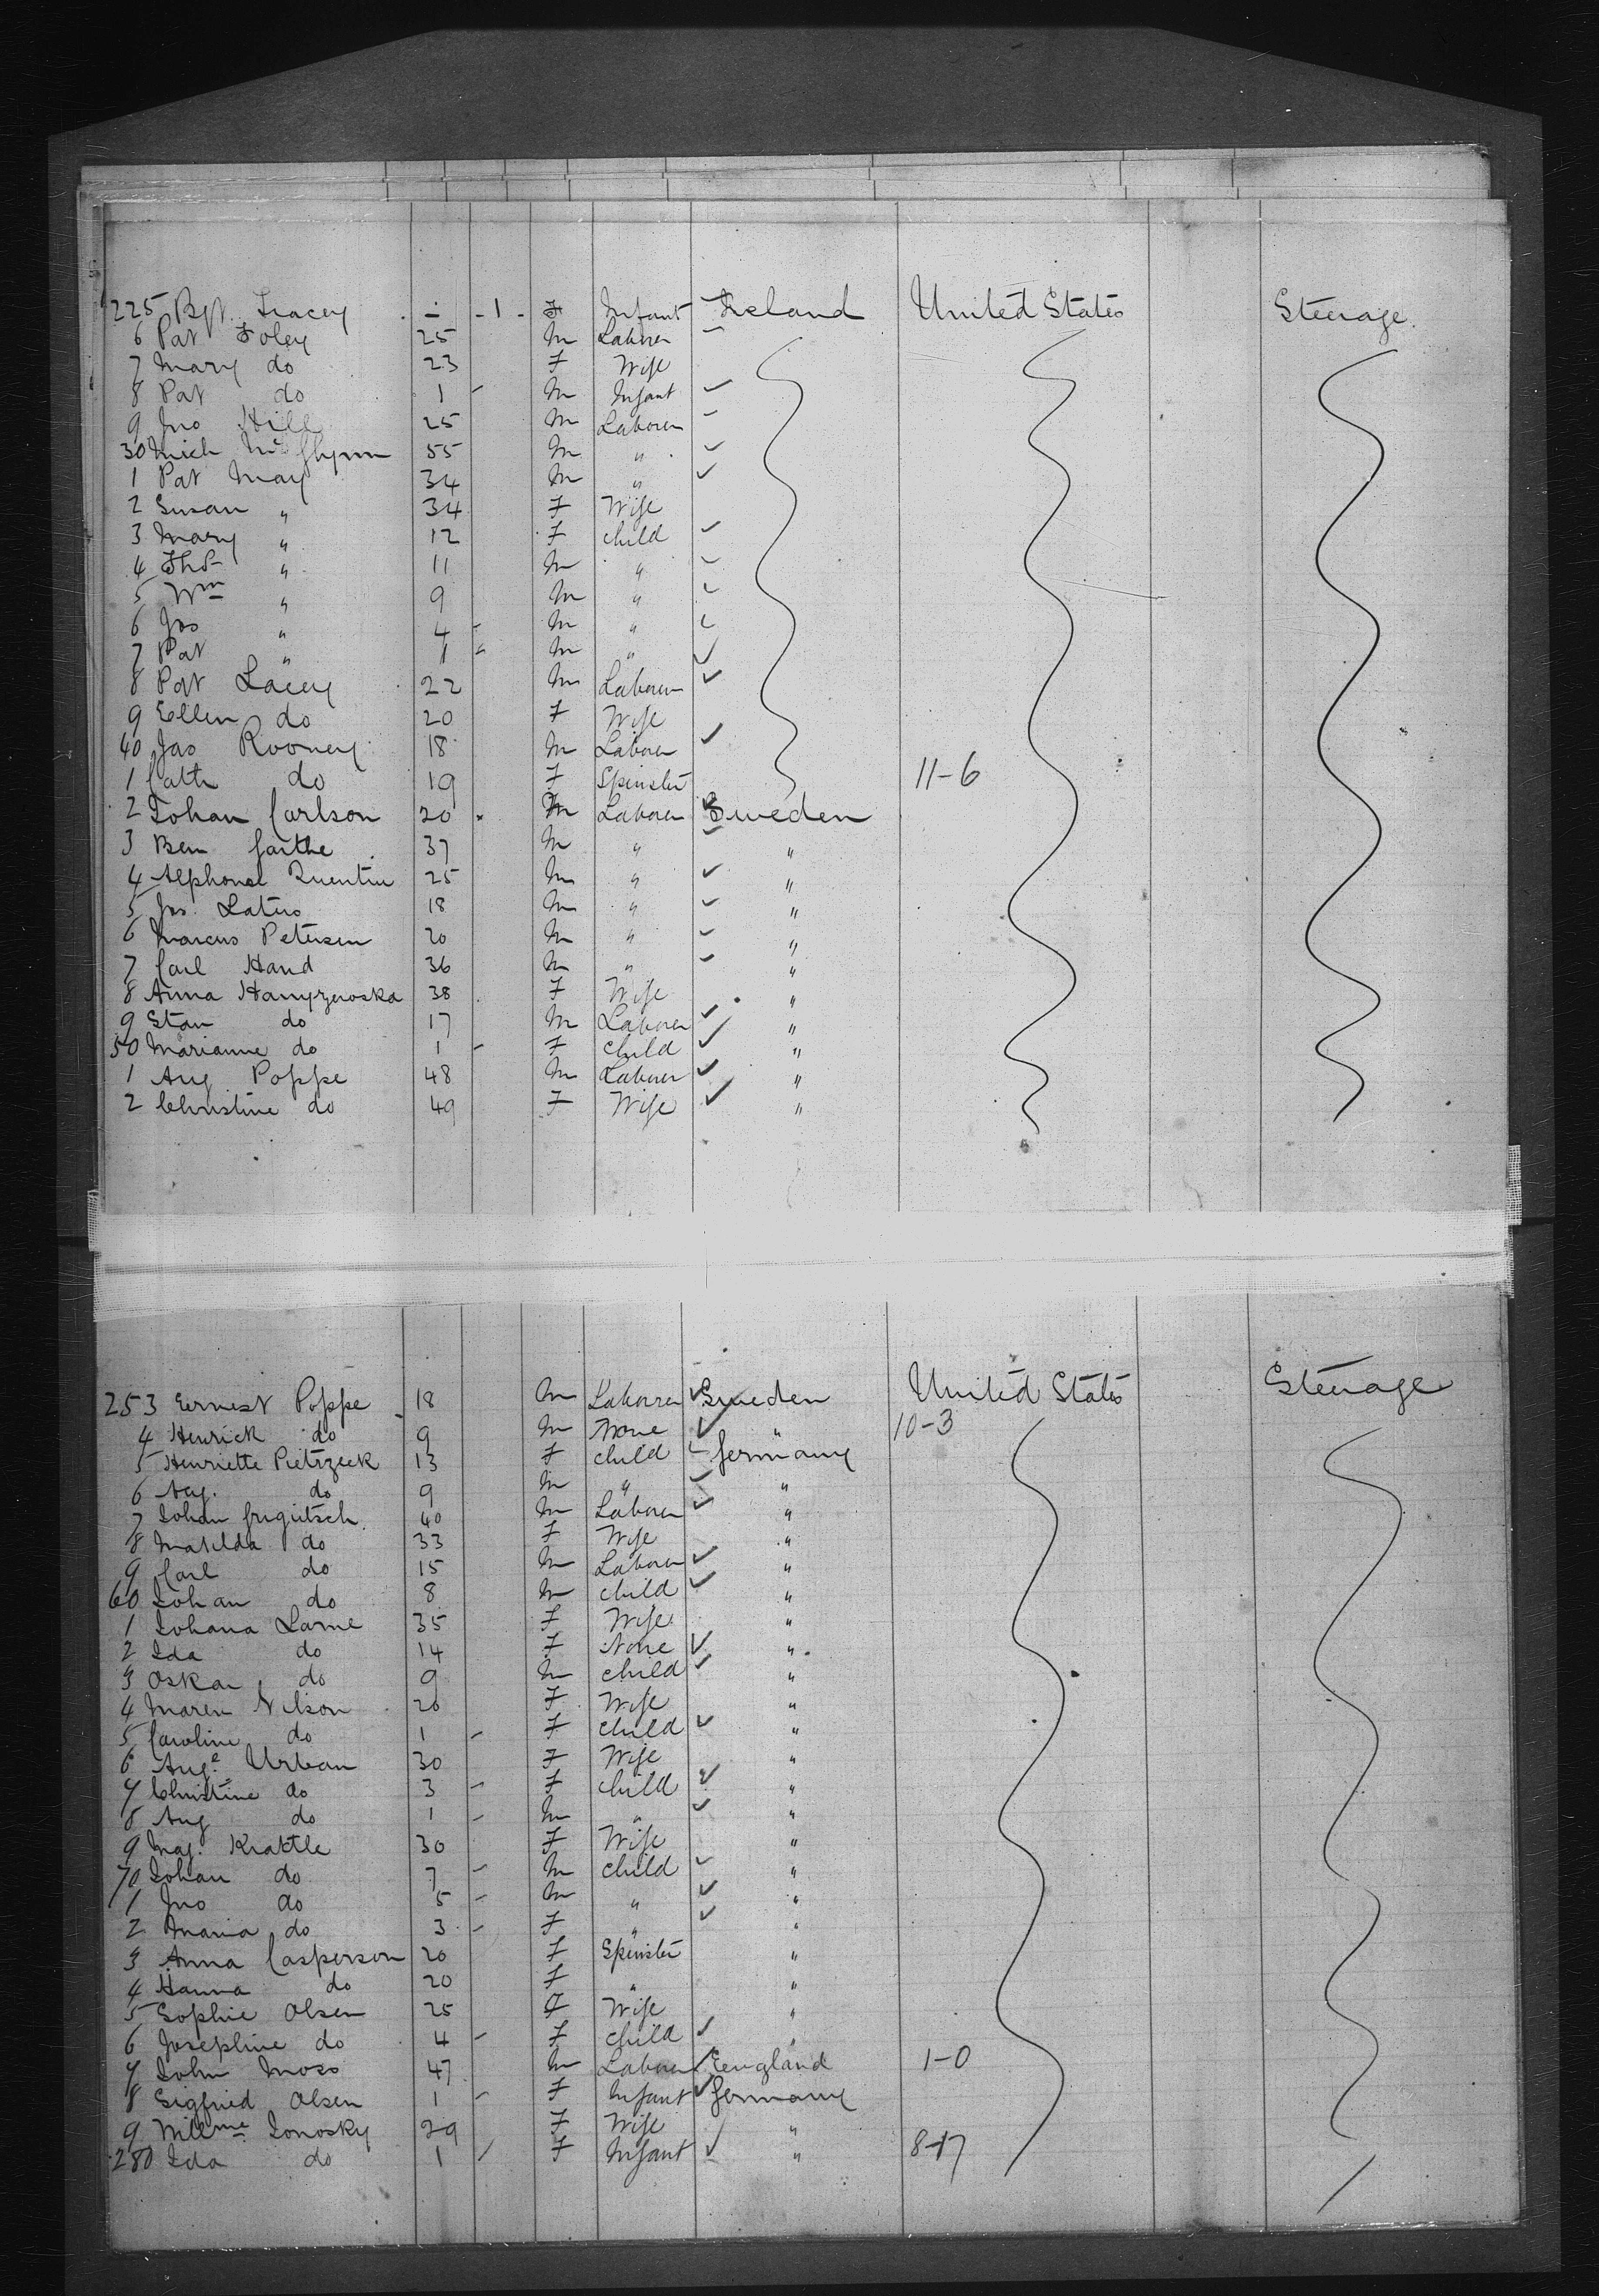 225 Bgt Tracey - 1 - F Infant Ireland United States Steerage.
6 Pat Foley 25 M Laborer
7 Mary do 23 F Wife
8 Pat do 1 - M Infant
9 Jno Hill 25 M Laborer
30 Mich Mc Glynn 55 M "
1 Pat May 34 M "
2 Susan " 34 F Wife
3 Mary " 12 F child
4 Thos " 11 M "
5 Wm " 9 M "
6 Jas " 4 - M "
7 Pat " 1 - M "
8 Pat Lacey 22 M Laborer
9 Ellen do 20 F Wife
40 Jas Rooney 18 M Laborer
1 Cath do 19 F Spinster 11-6
2 Johan Carlson 20 M Laborer Sweden
3 Ben Garthe 37 M " "
4 Alphonse Quentin 25 M " "
5 Jos. 18 M " "
6 Marcus Petersen 20 M " "
7 Carl Hand 36 M " "
8 Anna 38 F Wife "
9 Stan do 17 M Laborer "
50 Marianne do 1 - F child "
1 Aug Poppe 48 M Laborer "
2 Christine do 49 F Wife "
253 Ernest Poppe 18 M Laborer Sweden United States Steerage
4 Henrick do 9 M None " 10-3
5 Henriette Pietrzeck 13 F child Germany
6 Aug. do 9 M " "
7 Johan 40 M Laborer "
8 Matilda do 33 F Wife "
9 Carl do 15 M Laborer "
60 Johan do 8 M child "
1 Johana Larne 35 F Wife "
2 Ida do 14 F None "
3 Oskar do 9 M child "
4 Maren Nilson 20 F Wife "
5 Caroline do 1 - F child "
6 Auge Urban 30 F Wife "
7 Christine do 3 - F child "
8 Aug do 1 - M " "
9 Mag. Krattle 30 F Wife "
70 Johan do 7 - M child "
1 Jno do 5 - M " "
2 Maria do 3 - F " "
3 Anna Casperson 20 F Spinster "
4 Hanna do 20 F " "
5 Sophie Olsen 25 F Wife "
6 Josephine do 4 - F child "
7 John Moss 47 M Laborer England 1-0
8 Sigfried Olsen 1 - F Infant Germany
9 Jonosky 29 F Wife "
280 Ida do 1 - F Infant " 8-17